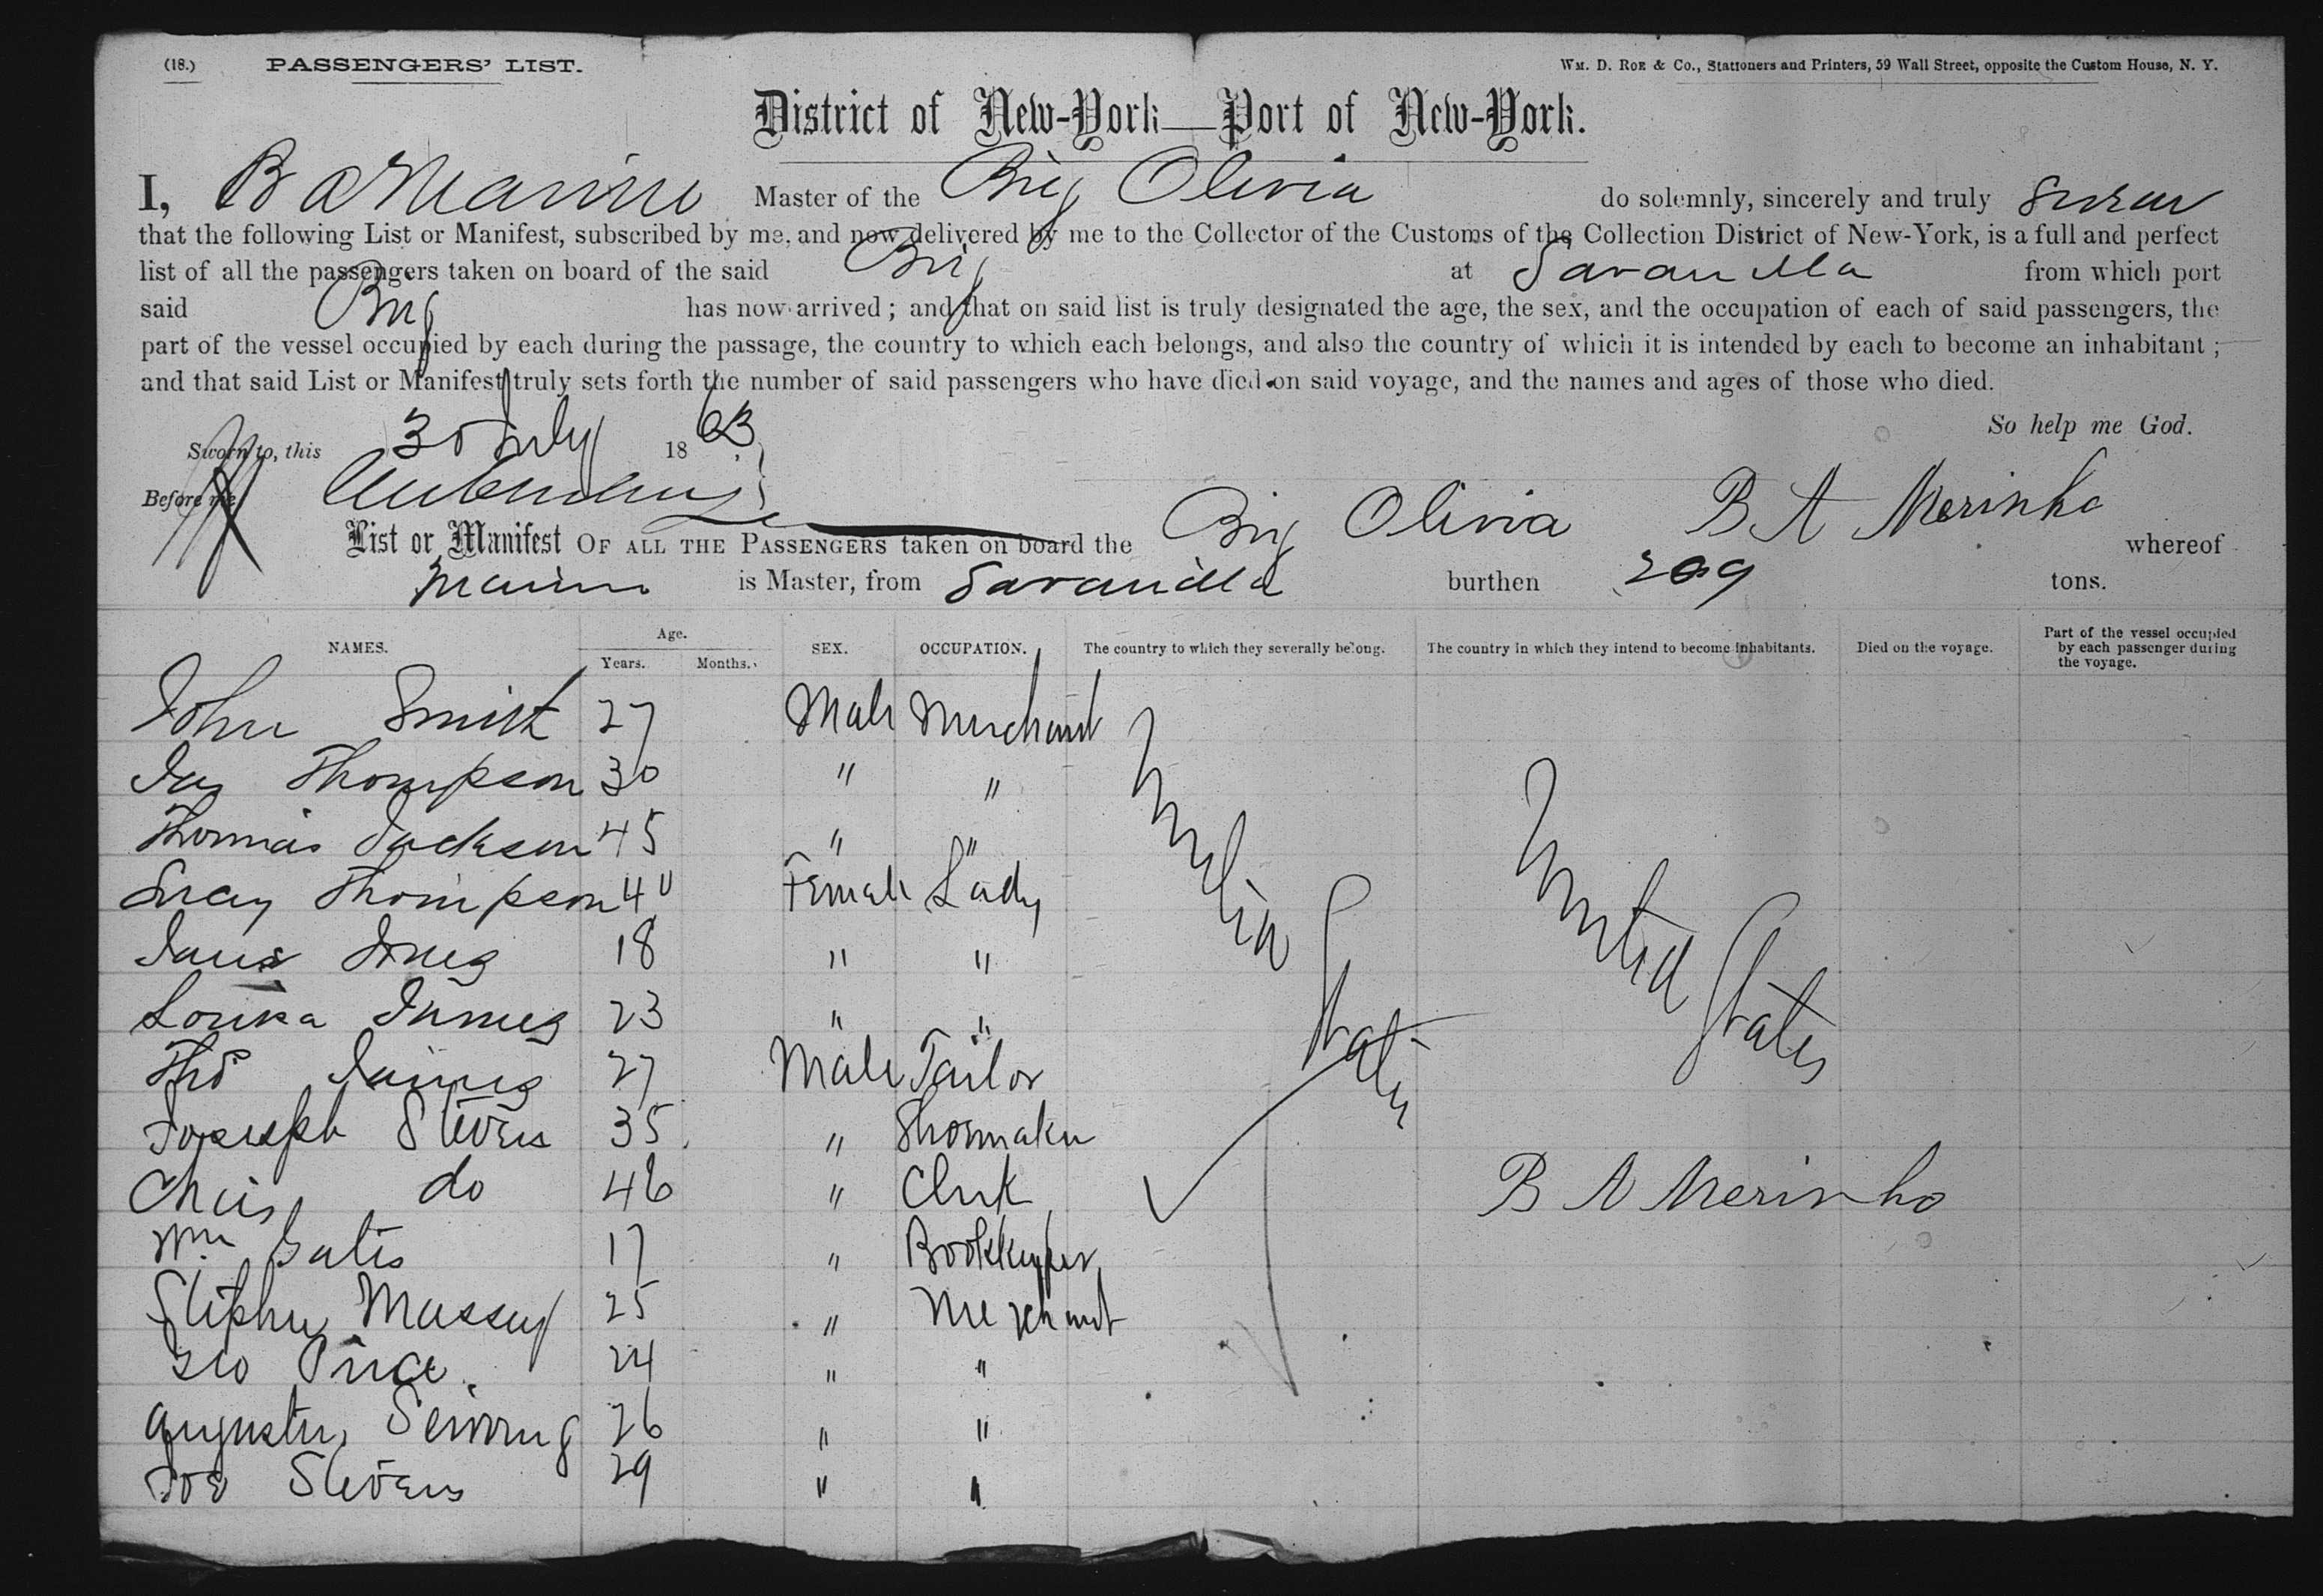 (18.) PASSENGERS' LIST. WM. D. ROE & CO., Stationers and Printers, 59 Wall Street, opposite the Custom House, N. Y.
District of New-York—Port of New-York.
I, B A Master of the Brig Olivia do solemnly, sincerely and truly swear
that the following List or Manifest, subscribed by me, and now delivered by me to the Collector of the Customs of the Collection District of New-York, is a full and perfect
list of all the passengers taken on board of the said Brig at Savanilla from which port
said Brig has now arrived; and that on said list is truly designated the age, the sex, and the occupation of each of said passengers, the
part of the vessel occupied by each during the passage, the country to which each belongs, and also the country of which it is intended by each to become an inhabitant;
and that said List or Manifest truly sets forth the number of said passengers who have died on said voyage, and the names and ages of those who died.
So help me God.
Sworn to, this 30 July 1863
Before me,
B A Merinho
List or Manifest OF ALL THE PASSENGERS taken on board the Brig Olivia whereof
is Master, from Savanilla burthen 209 tons.
NAMES. Age. Years. Months. SEX. OCCUPATION. The country to which they severally belong. The country in which they intend to become inhabitants. Died on the voyage. Part of the vessel occupied by each passenger during the voyage.
John Smith 27 Male Merchant
Jas Thompson 30 " "
Thomas Jackson 45 " "
Thompson 40 Female Lady
18 " "
Louisa James 23 " "
Thos James 27 Male Tailor
Joseph Stevens 35 " Shoemaker
Chas do 46 " Clerk
Wm Gates 17 " Bookkeeper
Stephen Massey 25 " Merchant
Geo Price 24 " "
Augustus 26 " "
Joe Stevens 29 " "
United States
United States
B A Merinho